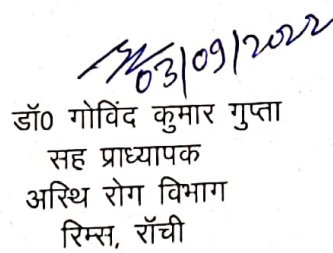 03/09/2022
डॉ0 गोविंद कुमार गुप्ता
सह प्राध्यापक
अस्थि रोग विभाग
रिम्स, रॉची